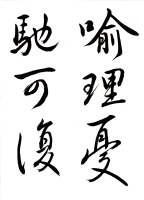 喻理憂
馳可復